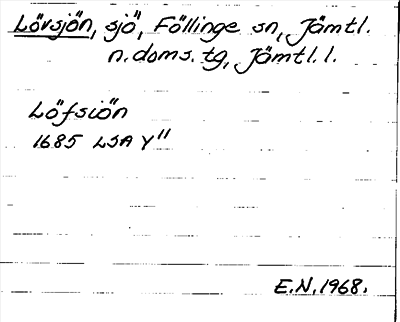 Lövsjön, sjö, Föllinge sn, Jämtl.
n.doms.tg, Jämtl.l.
Löfsiön
1685 LSA Y"
E.N.1968.